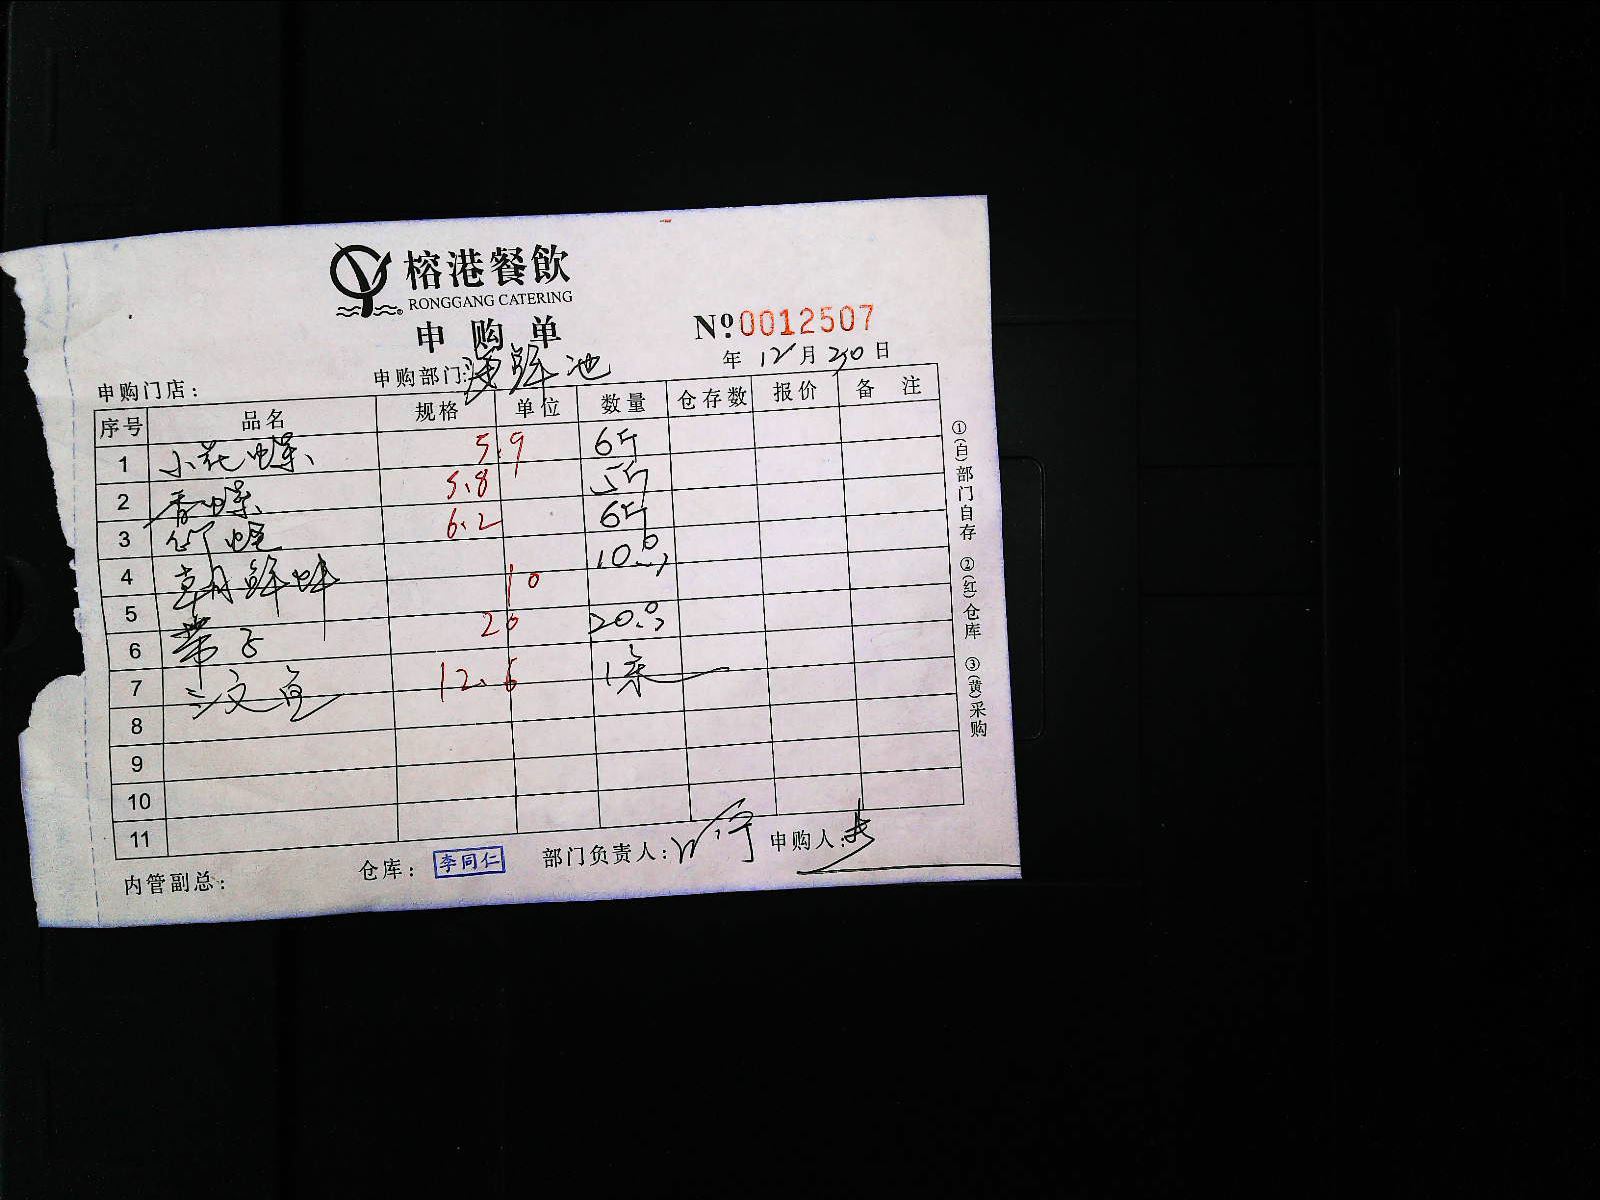 榕港餐飲
RONGGANG CATERING
申购单
№0012507
年 12月30日
申购门店： 申购部门：海鲜池
序号 品名 规格 单位 数量 仓存数 报价 备注
1 小花螺 5.9 6斤
2 香螺 5.8 5斤
3 竹蛏 6.2 6斤
4 朝鲜蚌 10 10只
5
6 带子 20 20只
7 三文鱼 12.6 1条
8
9
10
11
①(白)部门自存 ②(红)仓库 ③(黄)采购
内管副总： 仓库：李同仁 部门负责人： 申购人：